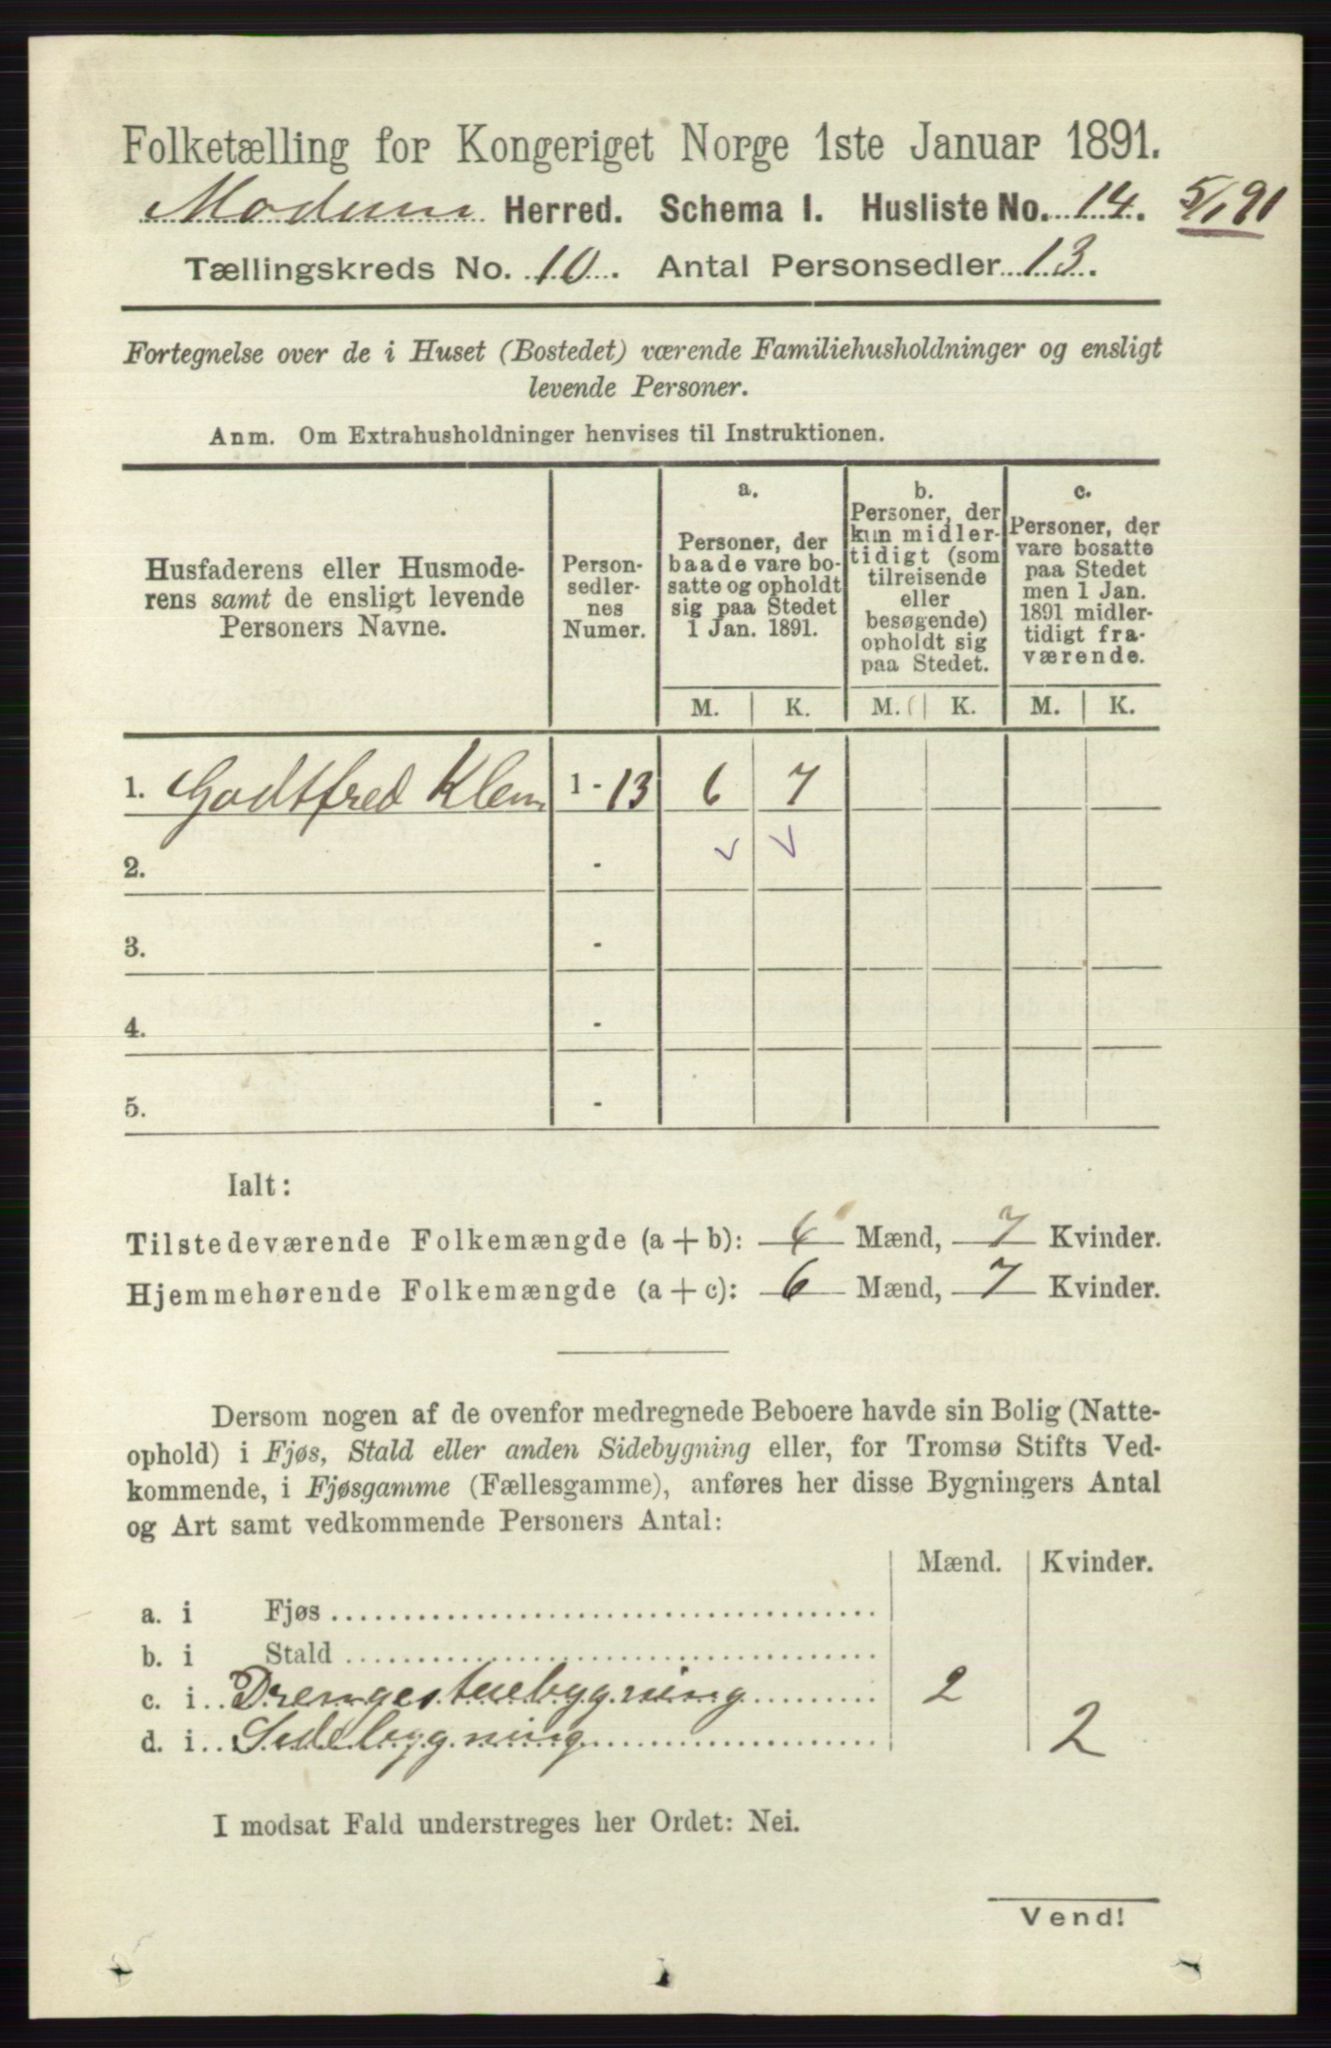 Folketælling for Kongeriget Norge 1ste Januar 1891.
Modum Herred. Schema I. Husliste No. 14. 5/1 91
Tællingskreds No. 10. Antal Personsedler 13.
Fortegnelse over de i Huset (Bostedet) værende Familiehusholdninger og ensligt
levende Personer.
Anm. Om Extrahusholdninger henvises til Instruktionen.
Husfaderens eller Husmode-
rens samt de ensligt levende
Personers Navne.
Person-
sedler-
nes
Numer.
a.
Personer, der
baade vare bo-
satte og opholdt
sig paa Stedet
1 Jan. 1891.
b.
Personer, der
kun midler-
tidigt (som
tilreisende
eller
besøgende)
opholdt sig
paa Stedet.
c.
Personer, der
vare bosatte
paa Stedet
men 1 Jan.
1891 midler-
tidigt fra-
værende.
M. K. M. K. M. K.
1. Godtfred Klem 1 - 13 6 7
2. -
3. -
4. -
5. -
Ialt:
Tilstedeværende Folkemængde (a + b): 6 Mænd, 7 Kvinder.
Hjemmehørende Folkemængde (a + c): 6 Mænd, 7 Kvinder.
Dersom nogen af de ovenfor medregnede Beboere havde sin Bolig (Natte-
ophold) i Fjøs, Stald eller anden Sidebygning eller, for Tromsø Stifts Ved-
kommende, i Fjøsgamme (Fællesgamme), anføres her disse Bygningers Antal
og Art samt vedkommende Personers Antal:
Mænd. Kvinder.
a. i Fjøs
b. i Stald
c. i Drengestuebygning 2
d. i Sidebygning 2
I modsat Fald understreges her Ordet: Nei.
Vend!